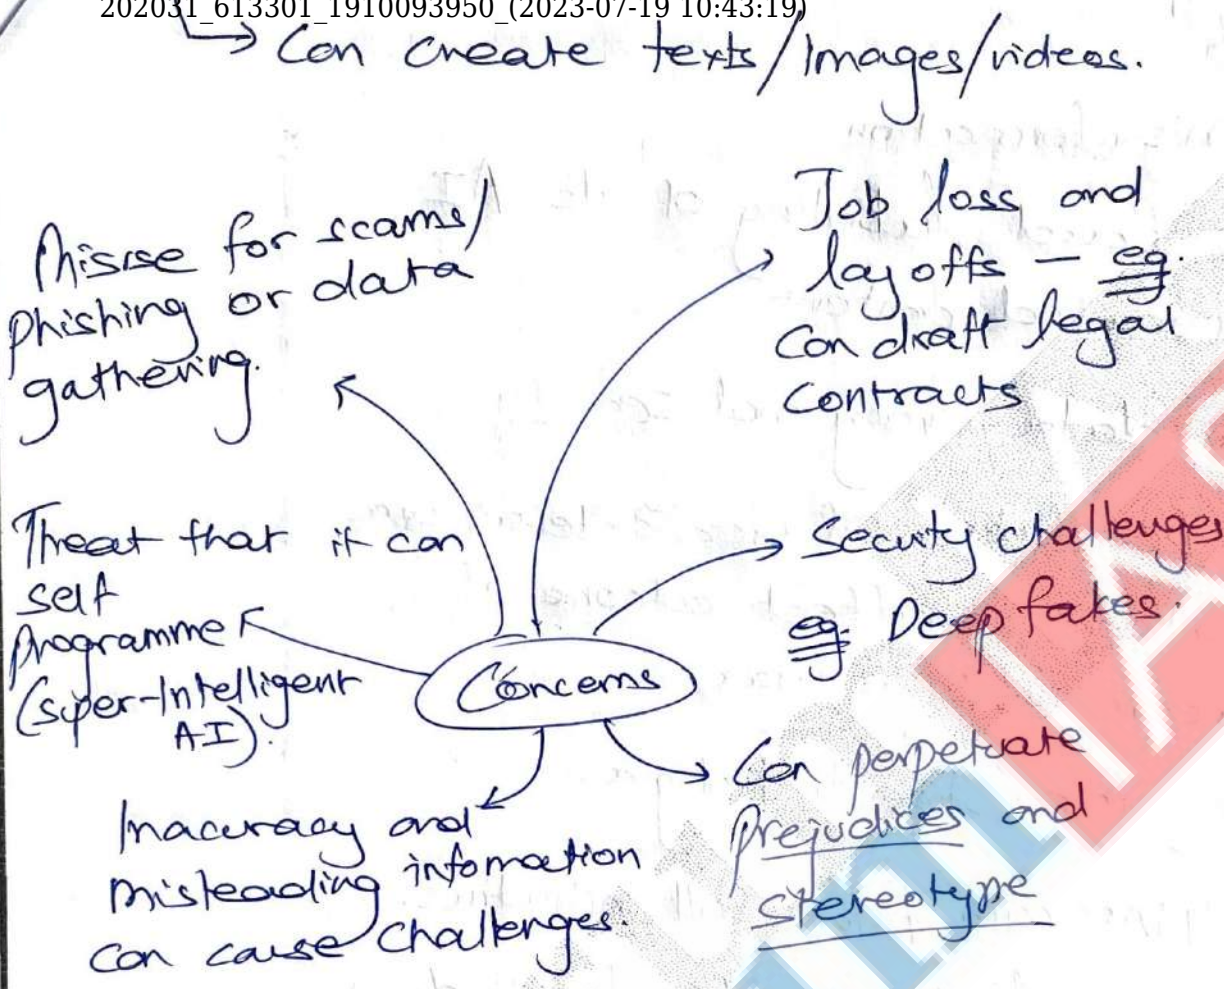 202031_613301_1910093950_(2023-07-19 10:43:19)
↳ Can create texts/Images/videos.
Misuse for scams/
phishing or data
gathering.
Job loss and
lay offs – eg.
can draft legal
contracts
Threat that it can
self
programme
(super-Intelligent
AI).
Security challenges
eg. Deep fakes.
Concerns
Inacuracy and
misleading infomation
can cause challenges.
Can perpetuate
prejudices and
stereotype
IAS